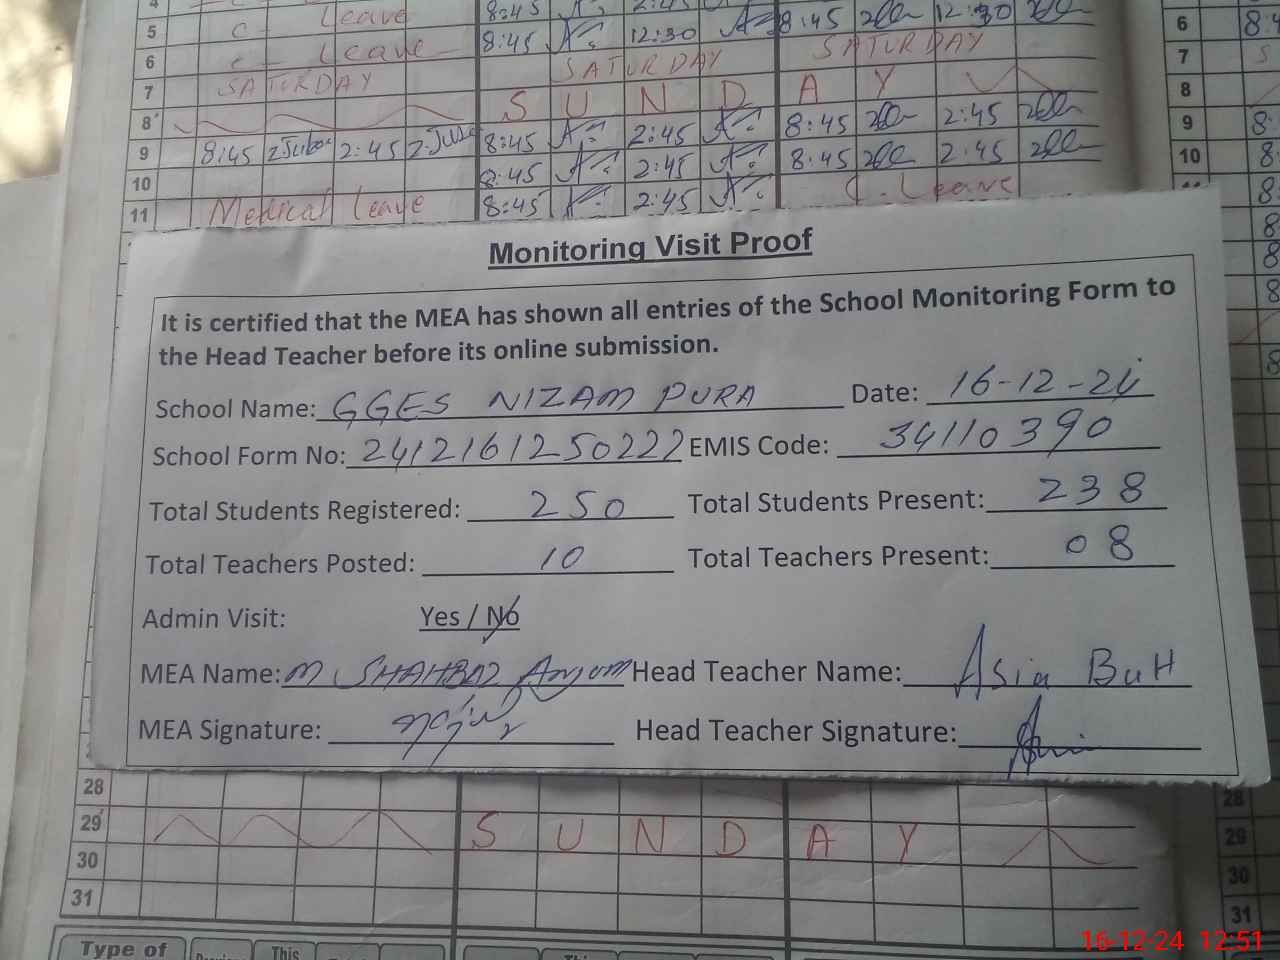 4
5 C - Leave 8:45 12:30 8:45 12:30
6 c - Leave 8:45 12:30 SATURDAY
7 SATURDAY SATURDAY
8 S U N D A Y
9 8:45 2:45 8:45 2:45 8:45 2:45
10 8:45 2:45 8:45 2:45
11 Medical Leave 8:45 2:45 C - Leave
6
7
8
9
10
Monitoring Visit Proof
It is certified that the MEA has shown all entries of the School Monitoring Form to
the Head Teacher before its online submission.
School Name: GGES NIZAM PURA Date: 16-12-24
School Form No: 2412161250222 EMIS Code: 34110390
Total Students Registered: 250 Total Students Present: 238
Total Teachers Posted: 10 Total Teachers Present: 08
Admin Visit: Yes / No
MEA Name: M SHAHBAZ Anjum Head Teacher Name: Asia Butt
MEA Signature: Head Teacher Signature:
28
29 S U N D A Y
30
31
28
29
30
31
Type of This This
16-12-24 12:51